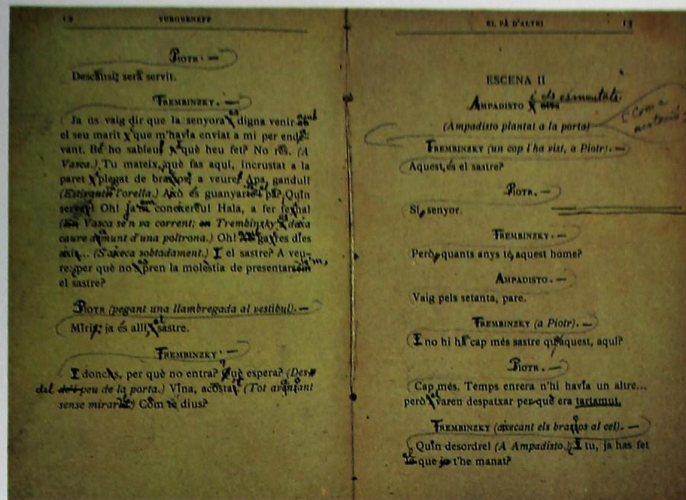 12 TURGUENEFF
PIOTR. —
Descansi; serà servit.
TREMBINZKY. —
Ja us vaig dir que la senyora digna venir
el seu marit que m'havia enviat a mi per
vant. Bé ho sabíeu què heu fet? No res. (A
Vasca.) Tu mateix, què fas aquí, incrustat a la
paret plegat de braços, a veure? Apa, gandul!
(Estirant l'orella.) Això és guanyar pa? Quin
Oh! Ja Hala, a fer
Vasca se'n va corrent; Trembinzky
caure damunt d'una poltrona.) Oh! dies
així... (S'aixeca sobtadament.) I el sastre? A veu-
re: per què no pren la molèstia de presentar
el sastre?
PIOTR (pegant una llambregada al vestíbul). —
Miri; ja és allí, sastre.
TREMBINZKY. —
I doncs, per què no entra? Què espera? (Des
del peu de la porta.) Vina, acosta (Tot
sense mirar Com dius?
EL PÀ D'ALTRI 13
ESCENA II
AMPADISTO els esmentats
(Ampadisto plantat a la porta)
Com a
TREMBINZKY (un cop l'ha vist, a Piotr). —
Aquest és el sastre?
PIOTR. —
Sí, senyor.
TREMBINZKY. —
Però, quants anys té aquest home?
AMPADISTO. —
Vaig pels setanta, pare.
TREMBINZKY (a Piotr). —
I no hi ha cap més sastre que aquest, aquí?
PIOTR. —
Cap més. Temps enrera n'hi havia un altre...
però varen despatxar perquè era tartamut.
TREMBINZKY (aixecant els braços al cel). —
Quin desordre! (A Ampadisto.) I tu, ja has fet
que t'he manat?